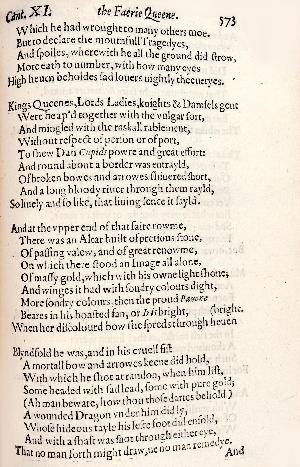 Cant. XI. the Faerie Queene. 573
Which he had wrought to many others moe.
But to declare the mournfull Tragedyes,
And spoiles, wherewith all the ground did strow,
More eath to number, with how many eyes
High heuen beholdes sad louers nightly theeueryes.
Kings Queenes, Lords Ladies, knights & Damsels gent
Were heap'd together with the vulgar sort,
And mingled with the raskall rablement,
Without respect of person or of port,
To shew Dan Cupids powre and great effort:
And round about a border was entrayld,
Of broken bowes and arrowes shiuered short,
And a long bloody riuer through them rayld,
So liuely and so like, that liuing sence it fayld.
And at the vpper end of that faire rowme,
There was an Altar built of pretious stone,
Of passing valew, and of great renowme,
On which there stood an Image all alone,
Of massy gold, which with his owne light shone;
And winges it had with sondry colours dight,
More sondry colours, then the proud Pauone
Beares in his boasted fan, or Iris bright, (bright.
When her discolourd bow she spreds through heuen
Blyndfold he was, and in his cruell fist
A mortall bow and arrowes keene did hold,
With which he shot at randon, when him list,
Some headed with sad lead, some with pure gold;
(Ah man beware, how thou those dartes behold)
A wounded Dragon vnder him did ly,
Whose hideous tayle his lefte foot did enfold,
And with a shaft was shot through either eye,
That no man forth might draw, ne no man remedye.
And